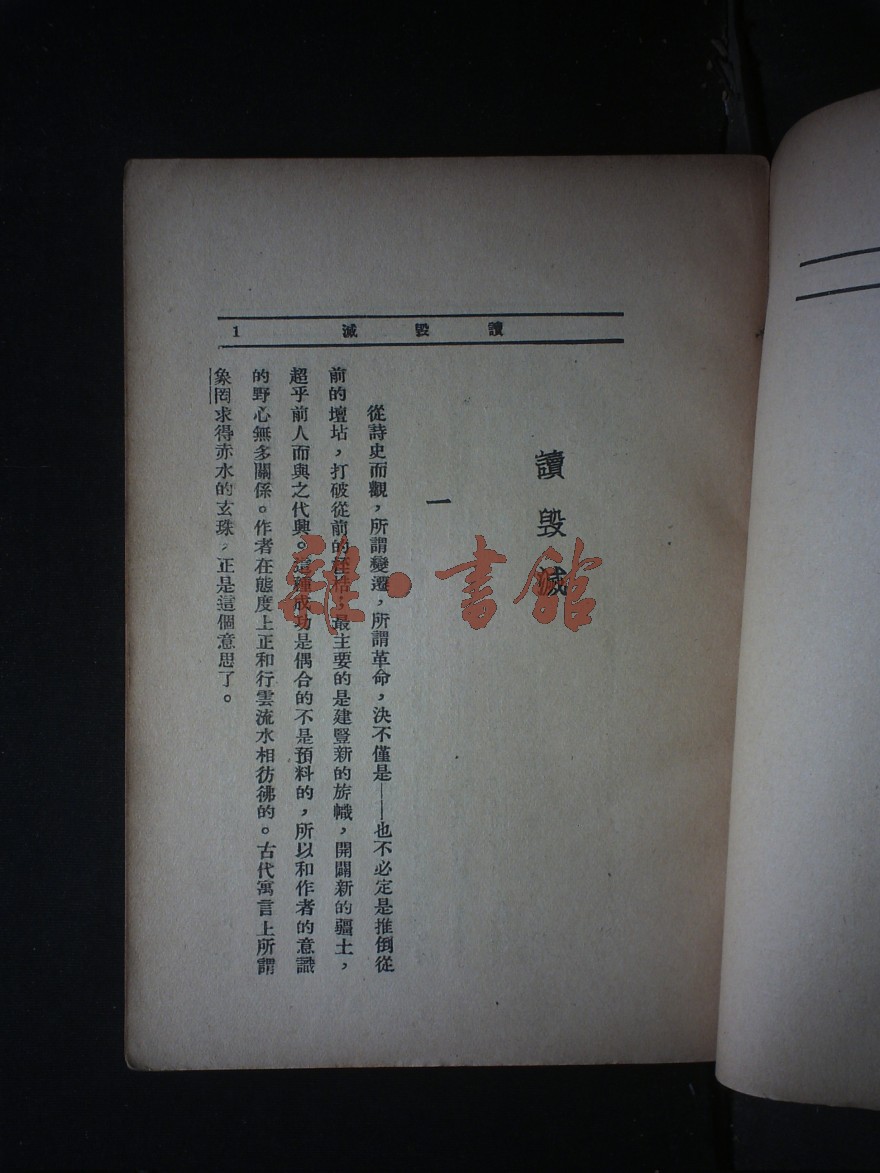 讀毀滅 1
讀毀滅
一
從詩史而觀，所謂變遷，所謂革命，決不僅是——也不必定是推倒從
前的壇坫，打破從前的桎梏；最主要的是建豎新的旂幟，開闢新的疆土，
超乎前人而與之代興。這種成功是偶合的不是預料的，所以和作者的意識
的野心無多關係。作者在態度上正和行雲流水相彷彿的。古代寓言上所謂
象罔求得赤水的玄珠，正是這個意思了。
雜·書館